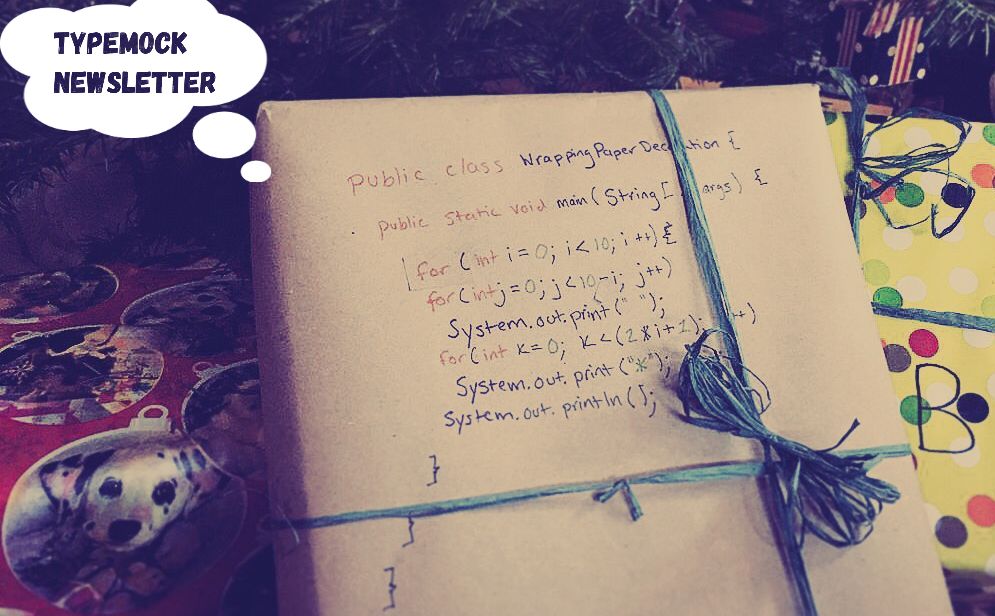 TYPEMOCK
NEWSLETTER
public class WrappingPaper {
public static void main(String[ args) {
for (int i=0; i<10; i++){
for(int j=0; j<10-i; j++)
System.out.print(" ");
for(int k=0; k<(2*i+1); ++)
System.out.print("*");
System.out.println();
}
}
}
B